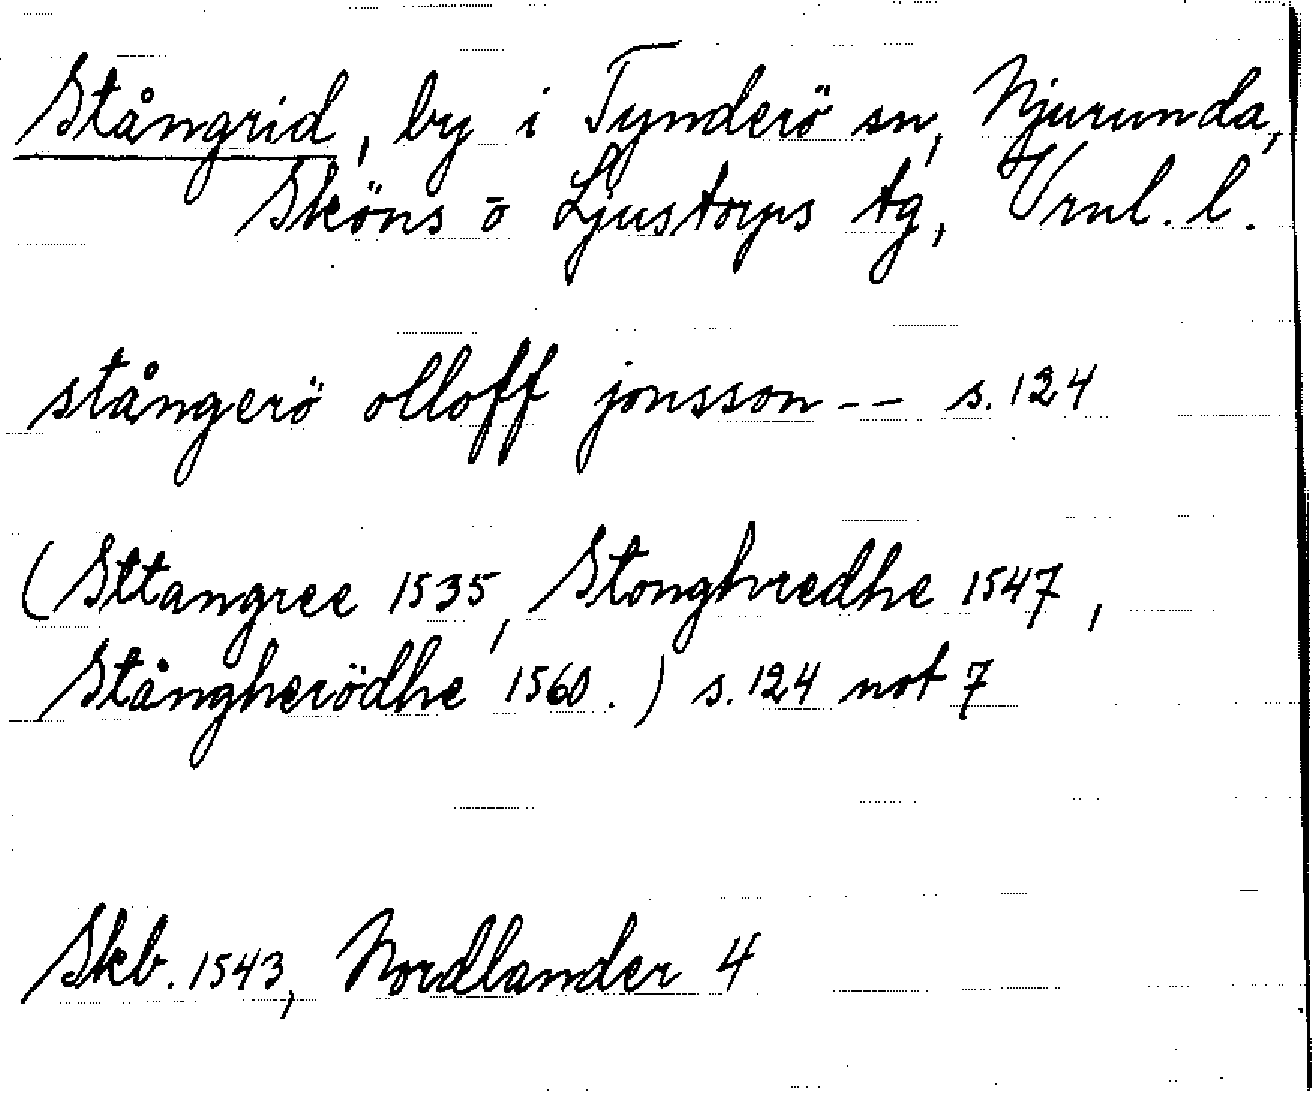 Stångrid, by i Tynderö sn, Njurunda,
Sköns o Ljustorps tg, Vrnl. l.
stångerö olloff jonsson -- s. 124
(Sttangree 1535, Stonghredhe 1547,
Stångherödhe 1560.) s. 124 not 7
Skb. 1543, Nordlander 4